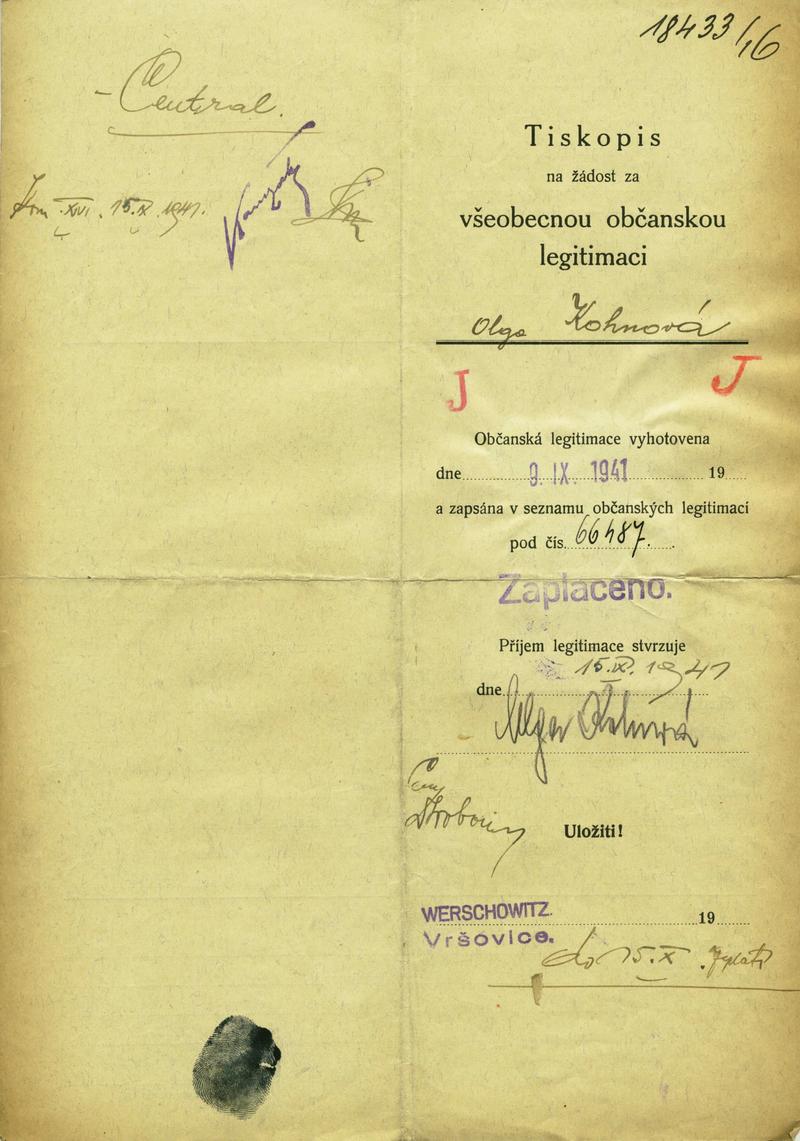 18433/16
Central.
XVI. 15.X.1941.
Tiskopis
na žádost za
všeobecnou občanskou
legitimaci
Olga Kohnová
J J
Občanská legitimace vyhotovena
dne 9. IX. 1941 19
a zapsána v seznamu občanských legitimací
pod čís. 66487.
Zaplaceno.
Příjem legitimace stvrzuje
dne 15.IX. 1941
Olga Kohnová
Uložiti!
WERSCHOWITZ. 19
Vršovice.
do 15.X.